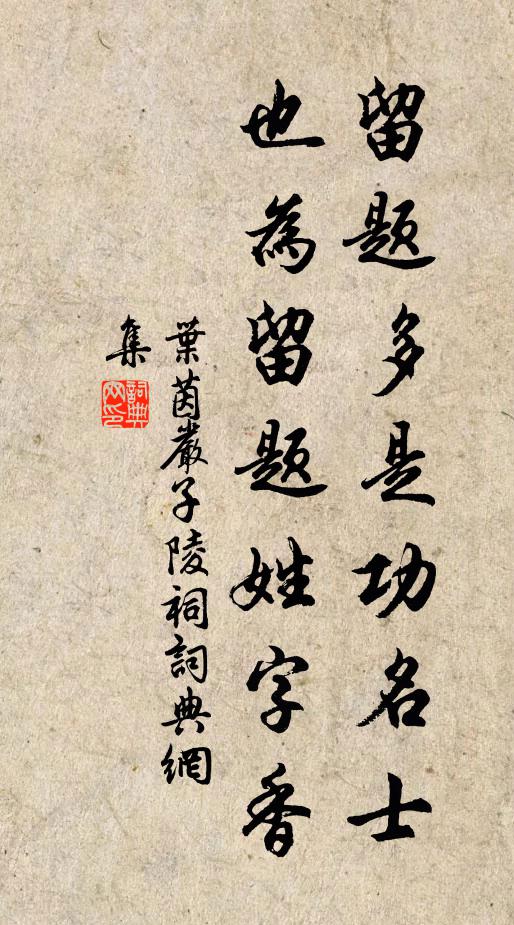 留题多是功名士
也為留题姓字香
葉茵嚴子陵祠詞典網
集
詞典
网印